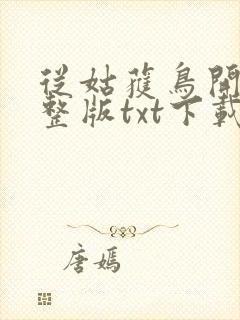 從姑獲鳥開
整版txt下載
唐嫣